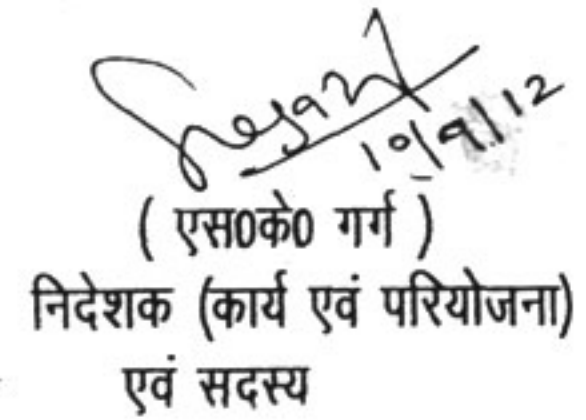 10/9/12
( एस0के0 गर्ग )
निदेशक (कार्य एवं परियोजना)
एवं सदस्य